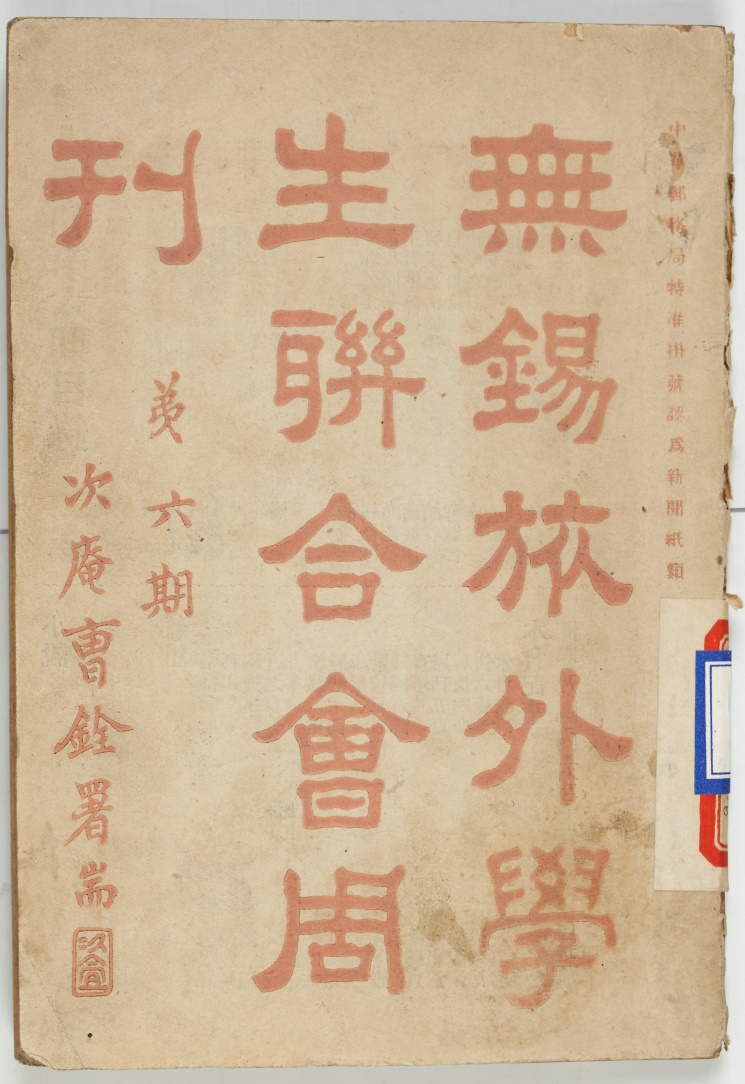 中華郵務局特准掛號認爲新聞紙類
無錫旅外學
生聯合會周
刊
第六期
次庵曹銓署耑